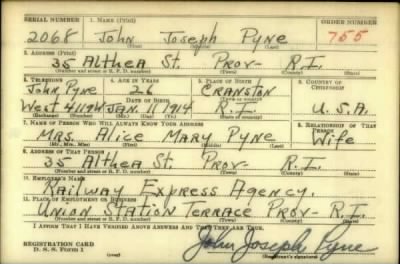 SERIAL NUMBER 1. NAME (Print) ORDER NUMBER
2068 John Joseph Pyne 755
(First) (Middle) (Last)
2. ADDRESS (Print)
35 Althea St. Prov- R.I.
(Number and street or R. F. D. number) (Town) (County) (State)
3. TELEPHONE 4. AGE IN YEARS 5. PLACE OF BIRTH 6. COUNTRY OF CITIZENSHIP
John Pyne 26 Cranston
DATE OF BIRTH (Town or county)
West JAN. 11, 1914 R.I. U.S.A.
(Exchange) (Number) (Mo.) (Day) (Yr.) (State or country)
7. NAME OF PERSON WHO WILL ALWAYS KNOW YOUR ADDRESS 8. RELATIONSHIP OF THAT PERSON
Mrs. Alice Mary Pyne Wife
(Mr., Mrs., Miss) (First) (Middle) (Last)
9. ADDRESS OF THAT PERSON
35 Althea St. Prov- R.I.
(Number and street or R. F. D. number) (Town) (County) (State)
10. EMPLOYER'S NAME
Railway Express Agency.
11. PLACE OF EMPLOYMENT OR BUSINESS
Union Station Terrace Prov- R.I.
(Number and street or R. F. D. number) (Town) (County) (State)
I AFFIRM THAT I HAVE VERIFIED ABOVE ANSWERS AND THAT THEY ARE TRUE.
REGISTRATION CARD
D. S. S. Form 1 (over) John Joseph Pyne
(Registrant's signature)